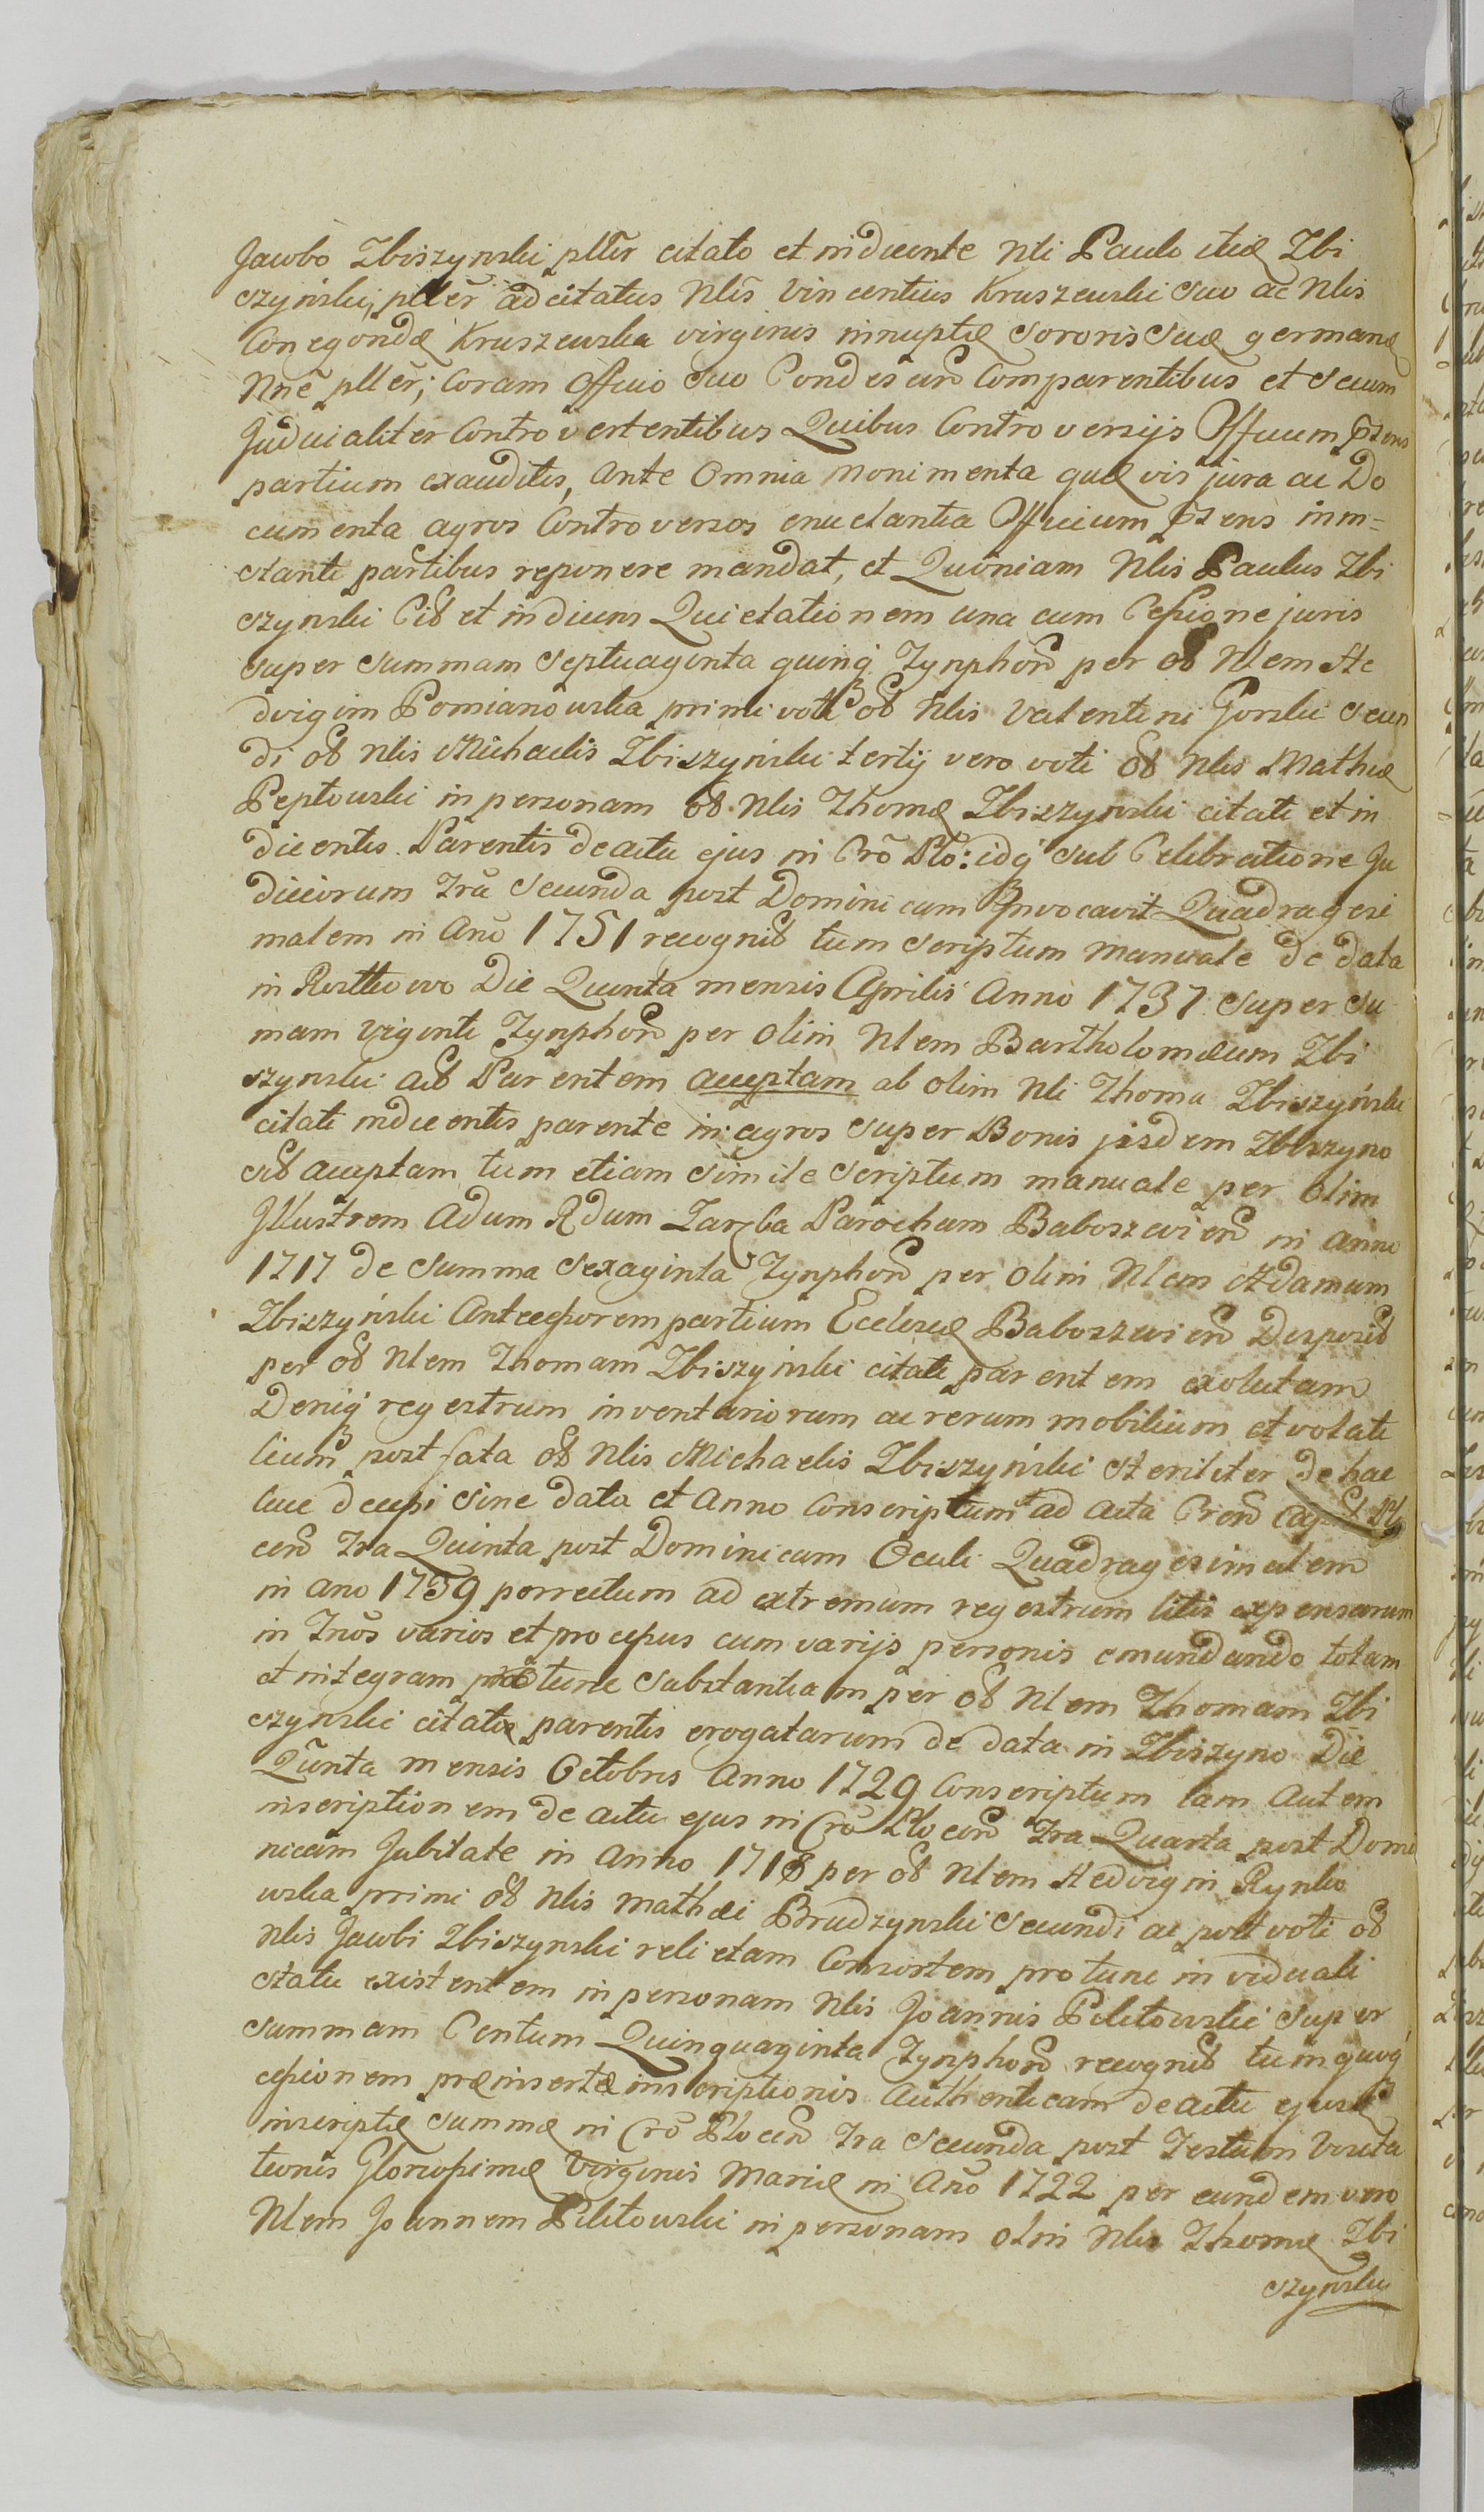 Jacobo Zbiszynski pllr citato et inducente Nli Paulo itiæ Zbi
szyński, pller adcitatus Nlis Vincentius Kruszewski suo ac Nlis
Conegondæ Kruszewska virginis innuptæ sororis suæ germanæ
Nne pller; Coram Officio suo Condescen Comparentibus et secum
Judicialiter Controvertentibus Quibus Controversijs Officium Pzens
partium exauditis, Ante Omnia Monimenta quævis jura ac Do
cumenta agros Controversos enuclantia Officium Pzens inin=
stanti partibus reponere mandat, et Quoniam Nlis Paulus Zbi
szynski Cit et inducens Quietationem una cum Cessione juris
super summam septuaginta quinq Tynphon per ol Nlem He
dvigim Pomianowska primi voti ol Nlis Valentini Gorski secun
di ol Nlis Michaelis Zbiszyński tertij vero voti ol Nlis Mathiæ
Peptowski in personam ol Nlis Thomæ Zbiszynski citati et in
ducentis Parentis de actu ejus in Cro Plo: idq sub Celebratione Ju
diciorum Fra Secunda post Dominicam Invocavit Quadragesi
malem in Ano 1751 recognit tum scriptum manuale de data
in Rostkowo Die Quinta mensis Aprilis Anno 1737 super su
mam viginti Tynphon per olim Nlem Bartholomæum Zbi
szynski act Parentem acceptam ab olim Nli Thoma Zbiszyński
citati inducentis parente in agros super Bonis jisdem Zbiszyno
sit acceptam, tum etiam simile scriptum manuale per olim
Illustrem Adum Rdum Zaręba Parochum Baboszevien in anno
1717 de summa sexaginta Tynphon per olim Nlem Adamum
Zbiszyński Antecessorem partium Eclesiæ Baboszevien Desposit
per ol Nlem Thomam Zbiszyński citati parentem exolutam
Deniq regestrum inventariorum ac rerum mobilium et volati
lium post fata ol Nlis Michaelis Zbiszyński steriliter de hac
luce decessi sine data et Anno Conscriptum ad acta Cren Capit Pl
cen Fra Quinta post Dominicam Oculi Quadragesimalem
in ano 1759 porrectum ad extremum regestrum litis expensarum
in Tnos varios et processus cum varijs personis emundando totam
et integram protunc substantiam per ol Nlem Thomam Zbi
szynski citati parentis erogatarum de data in Zbiszyno Die
Qunta mensis Octobris Anno 1729 Conscriptum tam Autem
inscriptionem de actu ejus in Cro Plocen Fra Quarta post Domi
nicam Jubilate in Anno 1718 per ol Nlem Hedvigin Rynko
wska primi ol Nlis Mathæi Brudzynski secundi ac post voti ol
Nlis Jacobi Zbiszynski relictam Consortem protunc in viduali
statu existentem in personam Nlis Joannis Pilitowski super
summam Centum Quinquaginta Tynphon recognit tum quoq
cessionem præinsertæ inscriptionis Authenticam de actu ejusd
inscriptæ summæ in Cro Plocen Fra Secunda post Festum Visita
tionis Gloriosissimæ Virginis Mariæ in Ano 1722 per eundem vero
Nlem Joannem Pilitowski in personam olim Nlis Thomæ Zbi
szynski